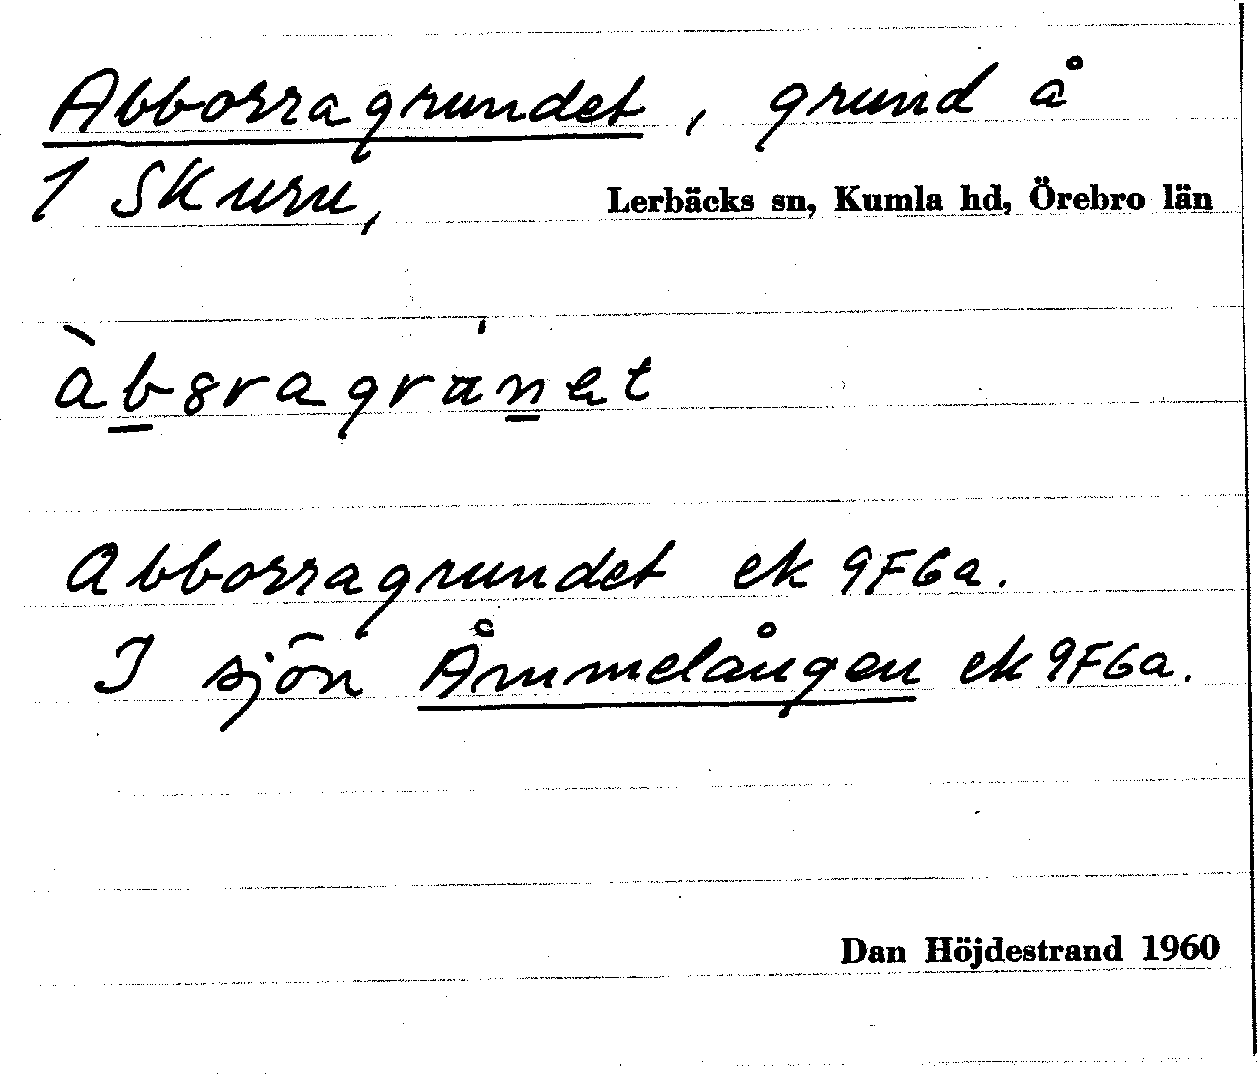 Abborragrundet, grund å
1 Skuru, Lerbäcks sn, Kumla hd, Örebro län
àbsragrunet
Abborragrundet ek 9F6a.
I sjön Åmmelången ek 9F6a.
Dan Höjdestrand 1960